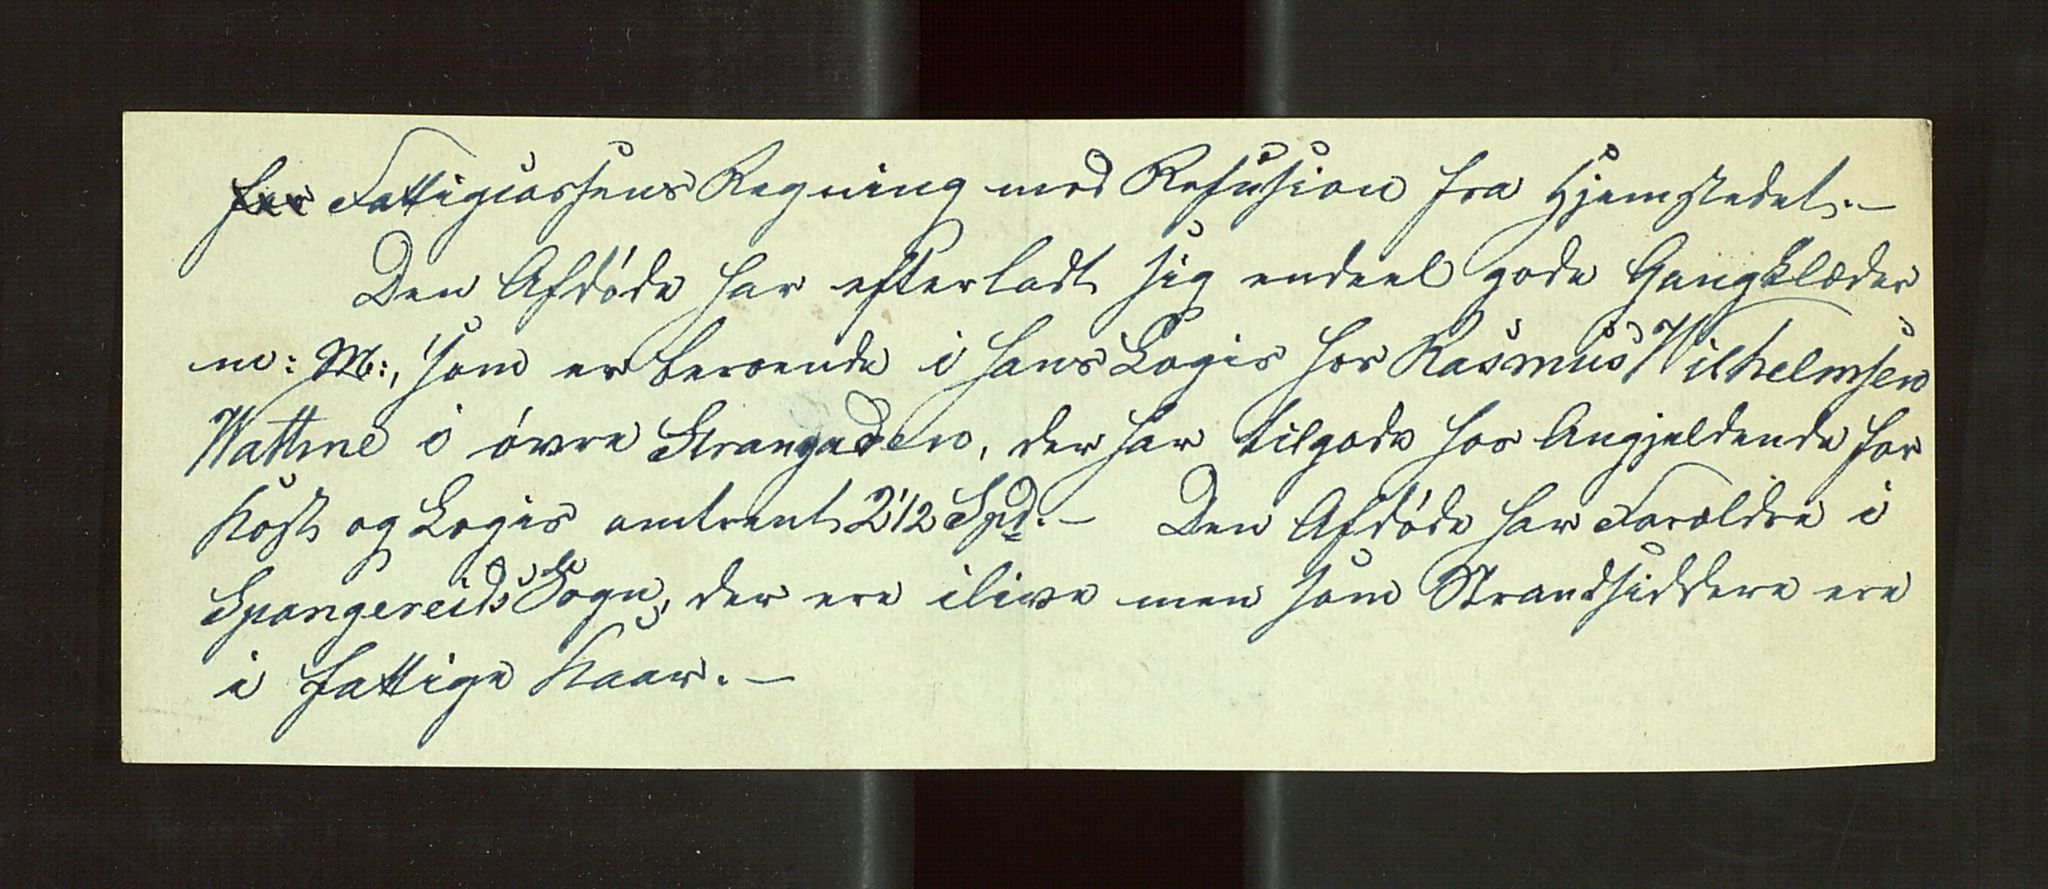 for Fattigcassens Regning mod Refusion fra Hjemstedet.-
Den Afdøde har efterladt sig endeel gode Gangklæder
m: M:, som er beroende i hans Logis hos Rasmus Wilhelmsen
Wattne i øvre Strangaden, der har tilgode hos Angjeldende for
Kost og Logis omtrent 2 1/2 Spd.- Den Afdøde har Forældre i
Spangereids Sogn, der ere ilive men som Strandsiddere ere
i fattige Kaar.-